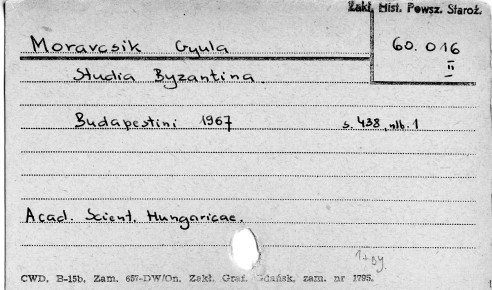 Zakł. Hist. Powsz. Staroż.
Moravcsik Gyula
60.016
II
Studia Byzantina.
Budapestini 1967 s. 438, nlb. 1
Acad. Scient. Hungaricae.
1+dy.
CWD. B-15b. Zam. 657-DW/On. Zakł. Graf. Gdańsk, zam. nr 1795.